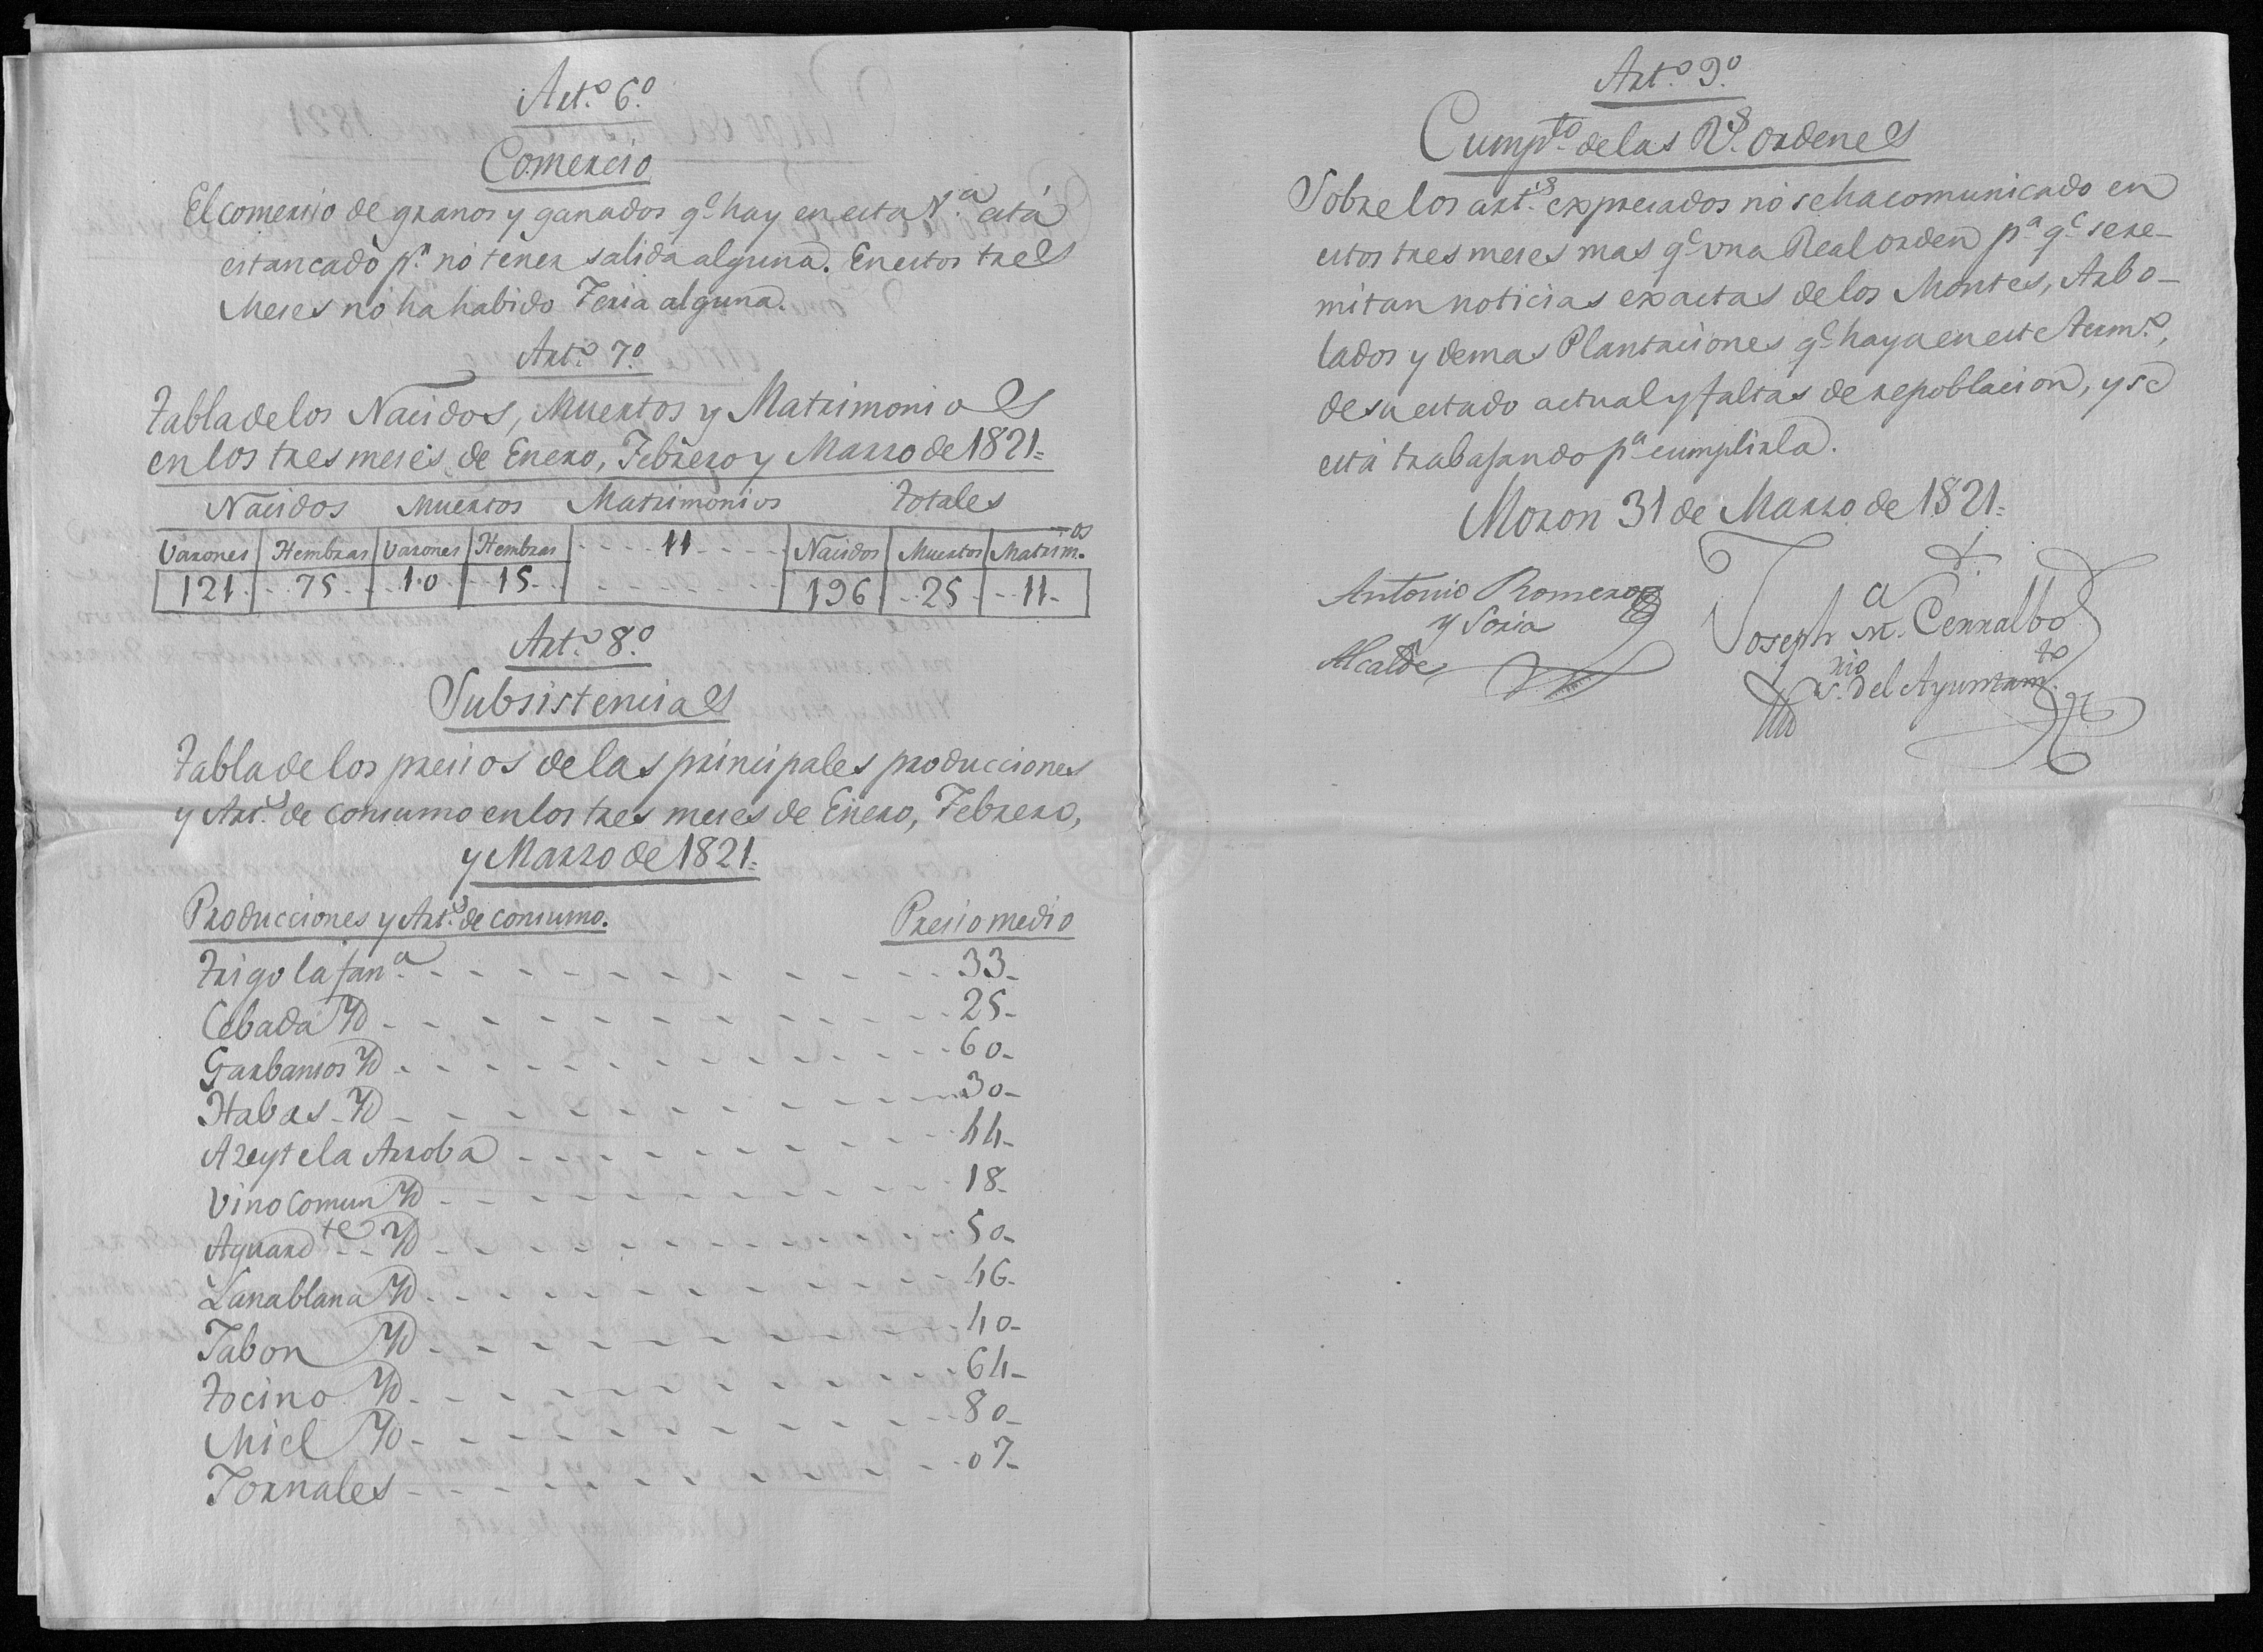 Art.º 6.º
Comercio
El comercio de granos y ganados q.e hay en esta V.a está
estancado p.r no tener salida alguna. En estos tres
Meses no ha habido Feria alguna.
Art.º 7.º
Tabla de los Nacidos, Muertos y Matrimonios
en los tres meses de Enero, Febrero y Marzo de 1821=
Nacidos Muertos Matrimonios Totales
Varones Hembras Varones Hembras 11 Nacidos Muertos Matrim.os
121 75 10 15 196 25 11
Art.º 8.º
Subsistencias
Tabla de los precios de las principales producciones
y Art.s de consumo en los tres meses de Enero, Febrero,
y Marzo de 1821=
Producciones y Art.s de consumo. Presio medio
Trigo la fan.a 33
Cebada Yd 25
Garbansos Yd 60
Habas Yd 30
Azeyte la Arroba 44
Vino comun Yd 18
Aguard.te Yd 50
Lana blana Yd 46
Jabon Yd 40
Tocino Yd 64
Miel Yd 80
Jornales 07
Art.º 9.º
Cump.to de las R.s ordenes
Sobre los art.s expresados no se ha comunicado en
estos tres meses mas q.e una Real orden p.a q.e se re-
mitan noticias exactas de los Montes, Arbo-
lados y demas Plantaciones q.e haya en este term.o,
de su estado actual y faltas de repoblacion, y se
está trabajando p.a cumplirla.
Moron 31 de Marzo de 1821=
Antonio Romero
y Soria
Alcalde
Joseph M.a Cerralbo
S.rio del Ayuntam.to